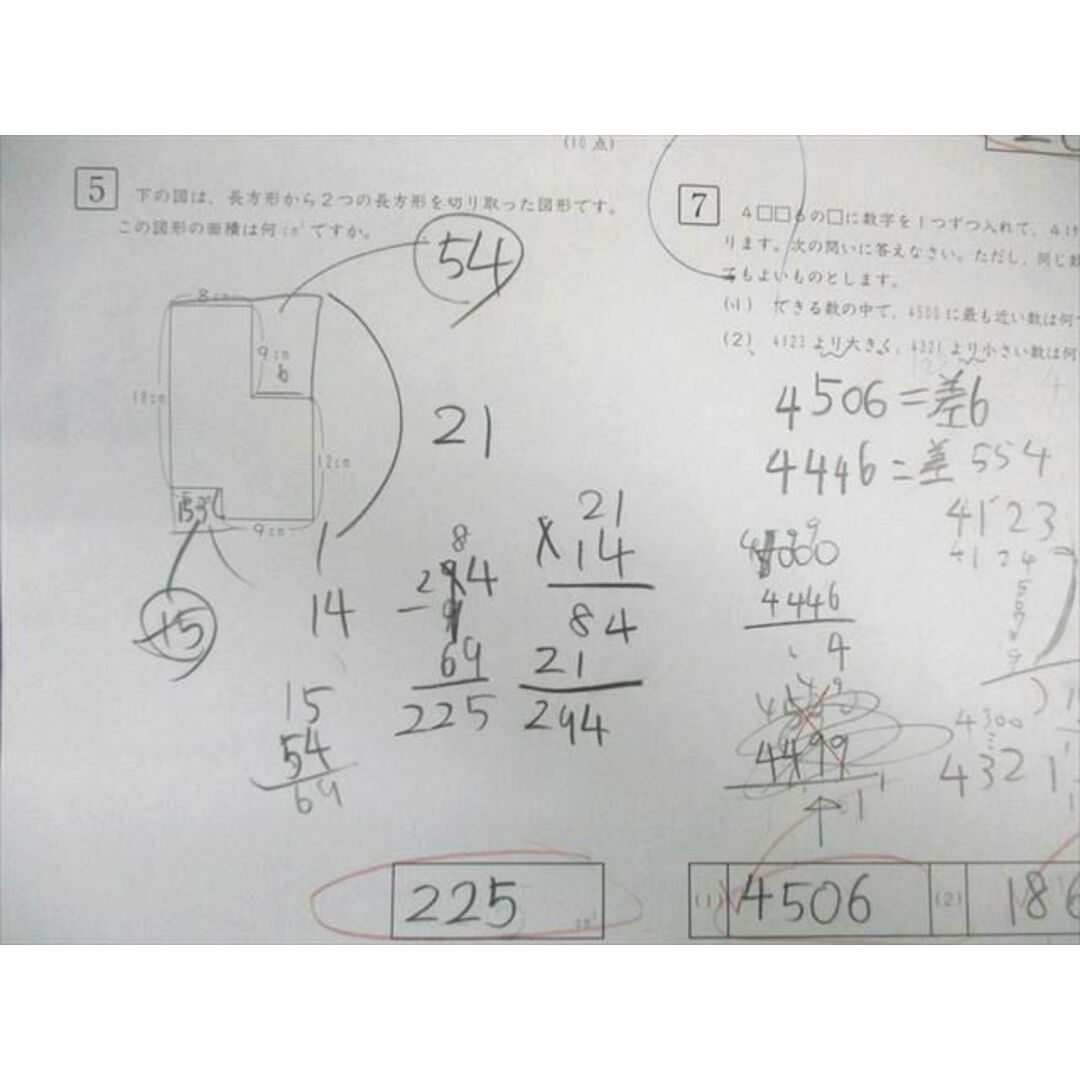 (10点)
5
下の図は、長方形から2つの長方形を切り取った図形です。
この図形の面積は何cm²ですか。
54
8cm
9cm
6
18cm
12cm
9cm
15
21
14
15
54
69
225
21
×14
84
21
294
225
cm²
7
4□□6の□に数字を1つずつ入れて、4け
ります。次の問いに答えなさい。ただし、同じ数
てもよいものとします。
(1) できる数の中で、4500に最も近い数は何で
(2) 4123より大きく、4321より小さい数は何
4506=差6
4446=差554
4123
4124
4446
4
4499
1
4300
4321
(1) 4506
(2) 186